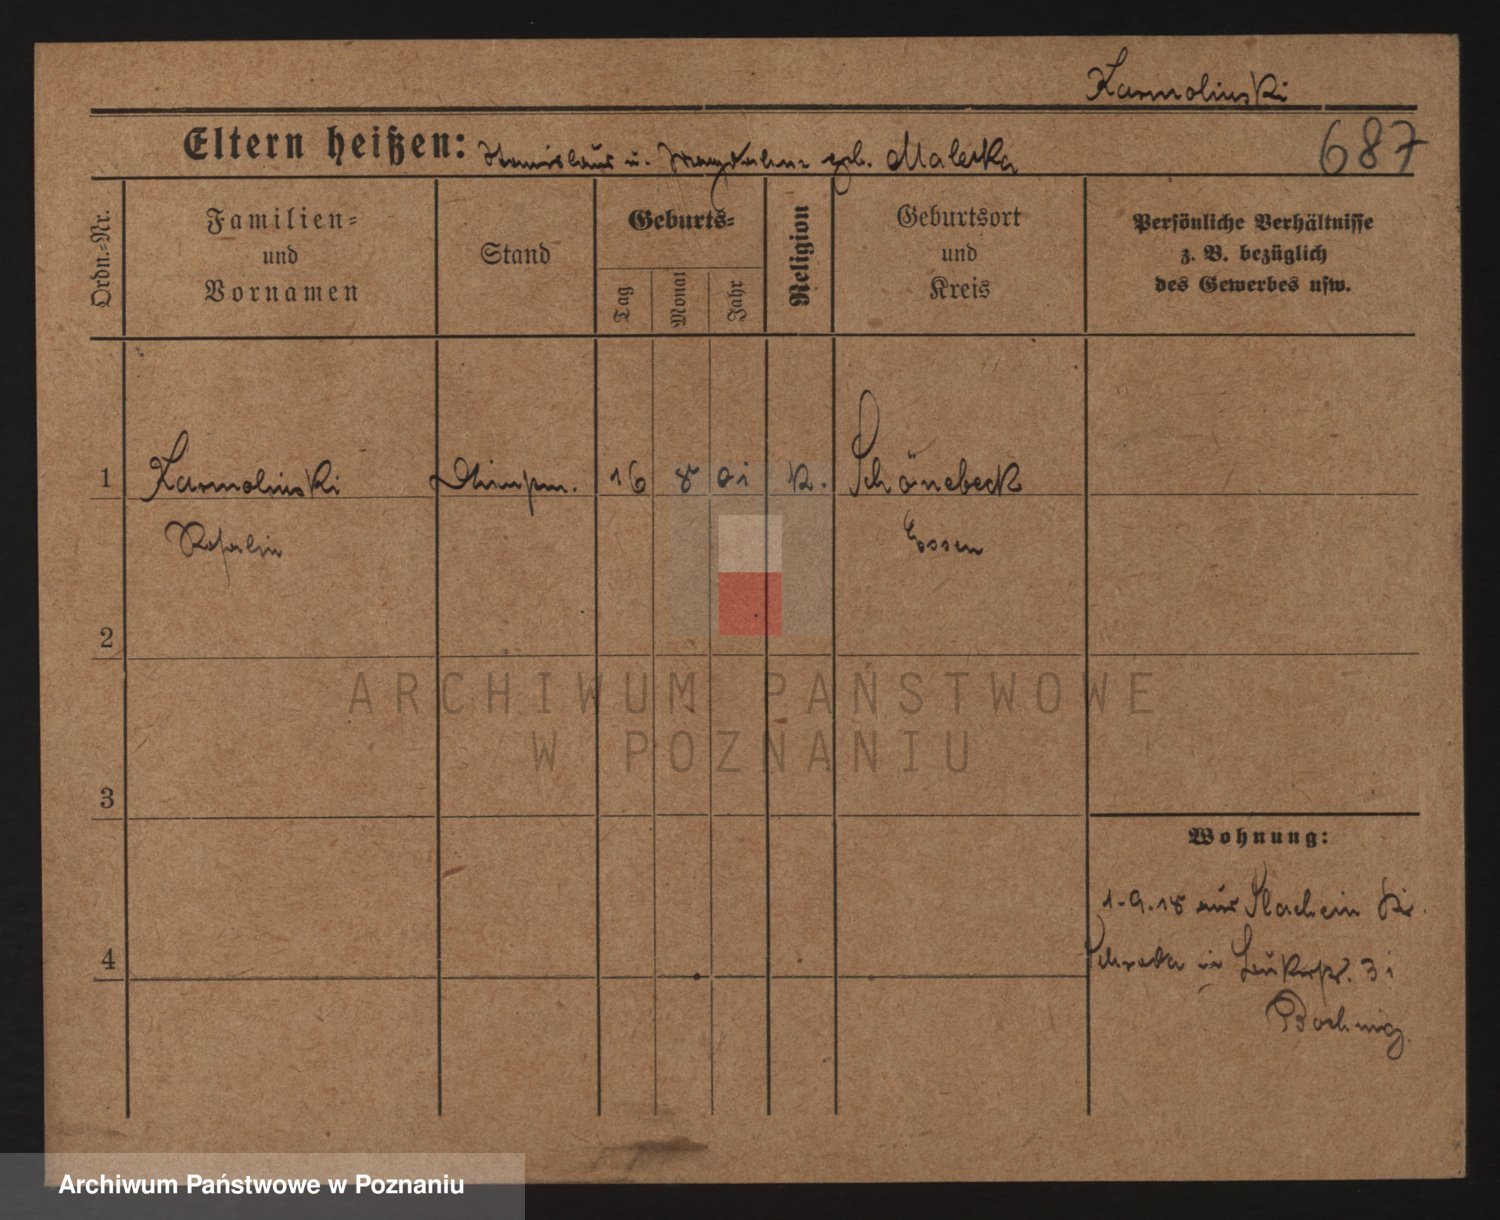 Karmolinski
Eltern heißen: Stanislaus u. Magdalena geb. Maleska
687
Ordn.=Nr.
Familien=
und
Vornamen
Stand
Geburts=
Tag
Monat
Jahr
Religion
Geburtsort
und
Kreis
Persönliche Verhältnisse
z. B. bezüglich
des Gewerbes usw.
1 Karmolinski 16 8 01 k. Schönebeck
Rosalie Essen
2
3
4
Wohnung:
1.9.18 aus Kr.
Schroda in 31
ARCHIWUM PAŃSTWOWE
W POZNANIU
Archiwum Państwowe w Poznaniu